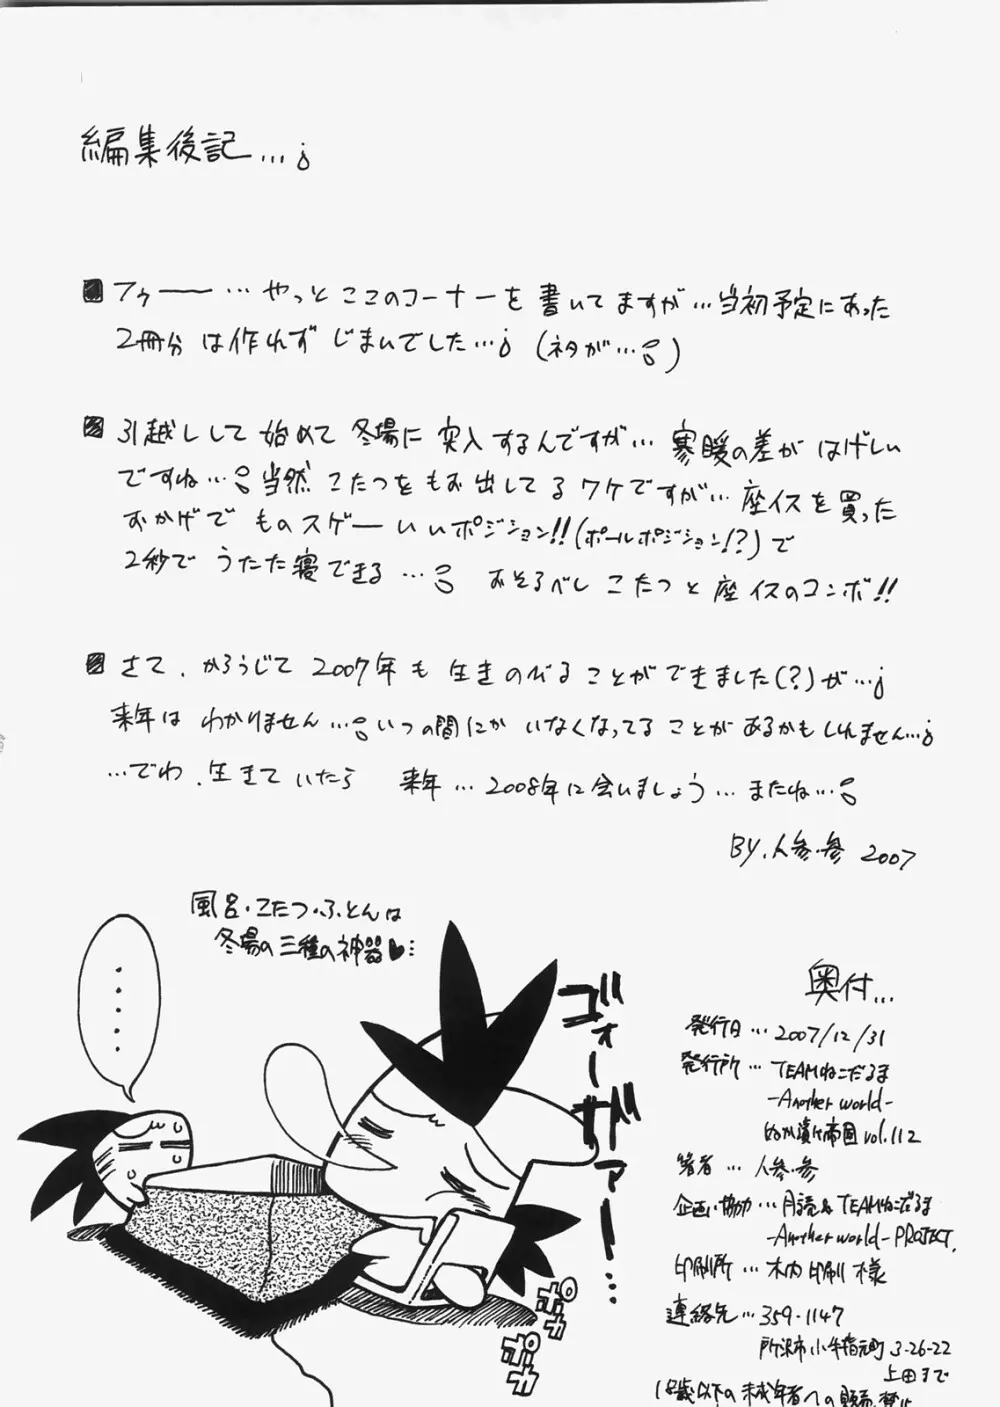 編集後記…;
■ フゥーー…やっとここのコーナーを書いてますが…当初予定にあった
2冊分は作れずじまいでした…; (ネタが…;)
■ 引越しして始めて冬場に突入するんですが…寒暖の差がはげしい
ですね…;当然こたつをもお出してるワケですが…座イスを買った
おかげでものスゲーいいポジション!!(ポールポジション!?)で
2秒でうたた寝できる…; おそるべしこたつと座イスのコンボ!!
■ さて、かろうじて2007年も生きのびることができました(?)が…;
来年はわかりません…;いつの間にかいなくなってることがあるかもしれません…;
…でわ、生きていたら 来年…2008年に会いましょう…またね…;
BY.人参.参 2007
風呂・こたつ・ふとんは
冬場の三種の神器♥…
・・・・・
ゴォーーガァーー…
ポカ
ポカ
奥付…
発行日…2007/12/31
発行所…TEAMねこだるま
-Another world-
ぬか漬け帝国 vol.112
著者…人参.参
企画・協力…月読&TEAMねこだるま
-Another world-PROJECT.
印刷所…木内印刷様
連絡先…359-1147
所沢市小手指元町3-26-22
上田まで
18歳以下の未成年者への販売禁止